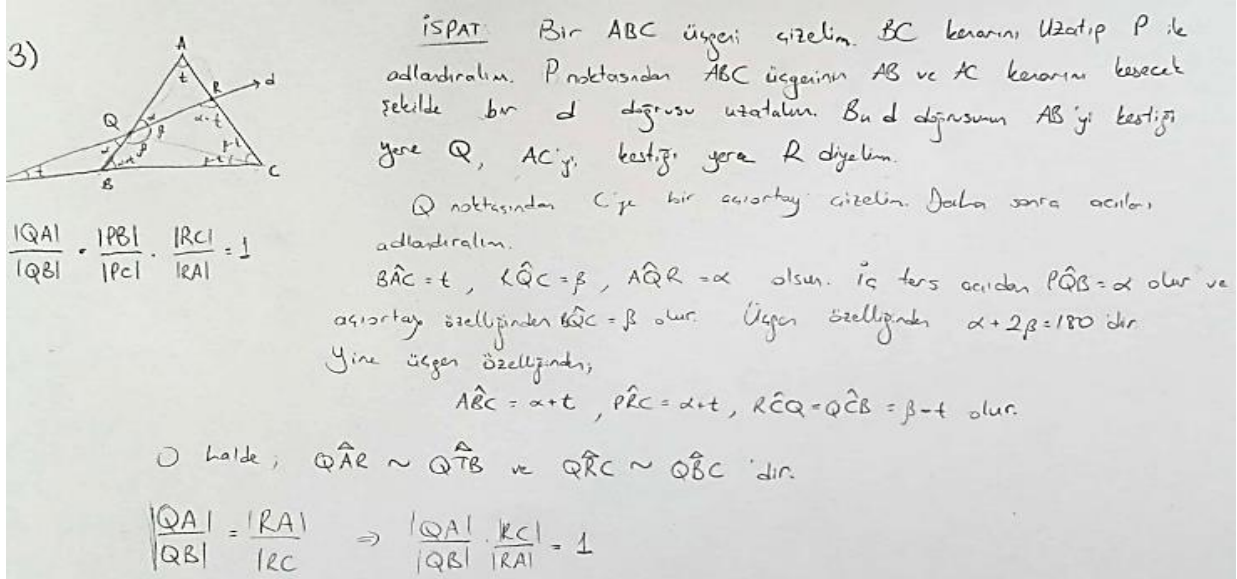 3)
İSPAT: Bir ABC üçgeni çizelim. BC kenarını Uzatıp P ile
adlandıralım. P noktasından ABC üçgeninin AB ve AC kenarını kesecek
şekilde bir d doğrusu uzatalım. Bu d doğrusunun AB'yi kestiği
yere Q, AC'yi kestiği yere R diyelim.
Q noktasından C'ye bir açıortay çizelim. Daha sonra açıları
adlandıralım.
BÂC = t, RQ̂C = β, AQ̂R = α olsun. İç ters açıdan PQ̂B = α olur ve
açıortay özelliğinden BQ̂C = β olur. Üçgen özelliğinden α + 2β = 180 'dir
Yine üçgen özelliğinden;
AB̂C = α+t, PR̂C = α+t, RĈQ = QĈB = β-t olur.
O halde; QÂR ~ QT̂B ve QR̂C ~ QB̂C 'dir.
|QA|/|QB| = |RA|/|RC ⇒ |QA|/|QB| · |RC|/|RA| = 1
|QA|/|QB| · |PB|/|PC| · |RC|/|RA| = 1
A
t
R
d
Q
α
β
α+t
β
α
β-t
β-t
t
B
C